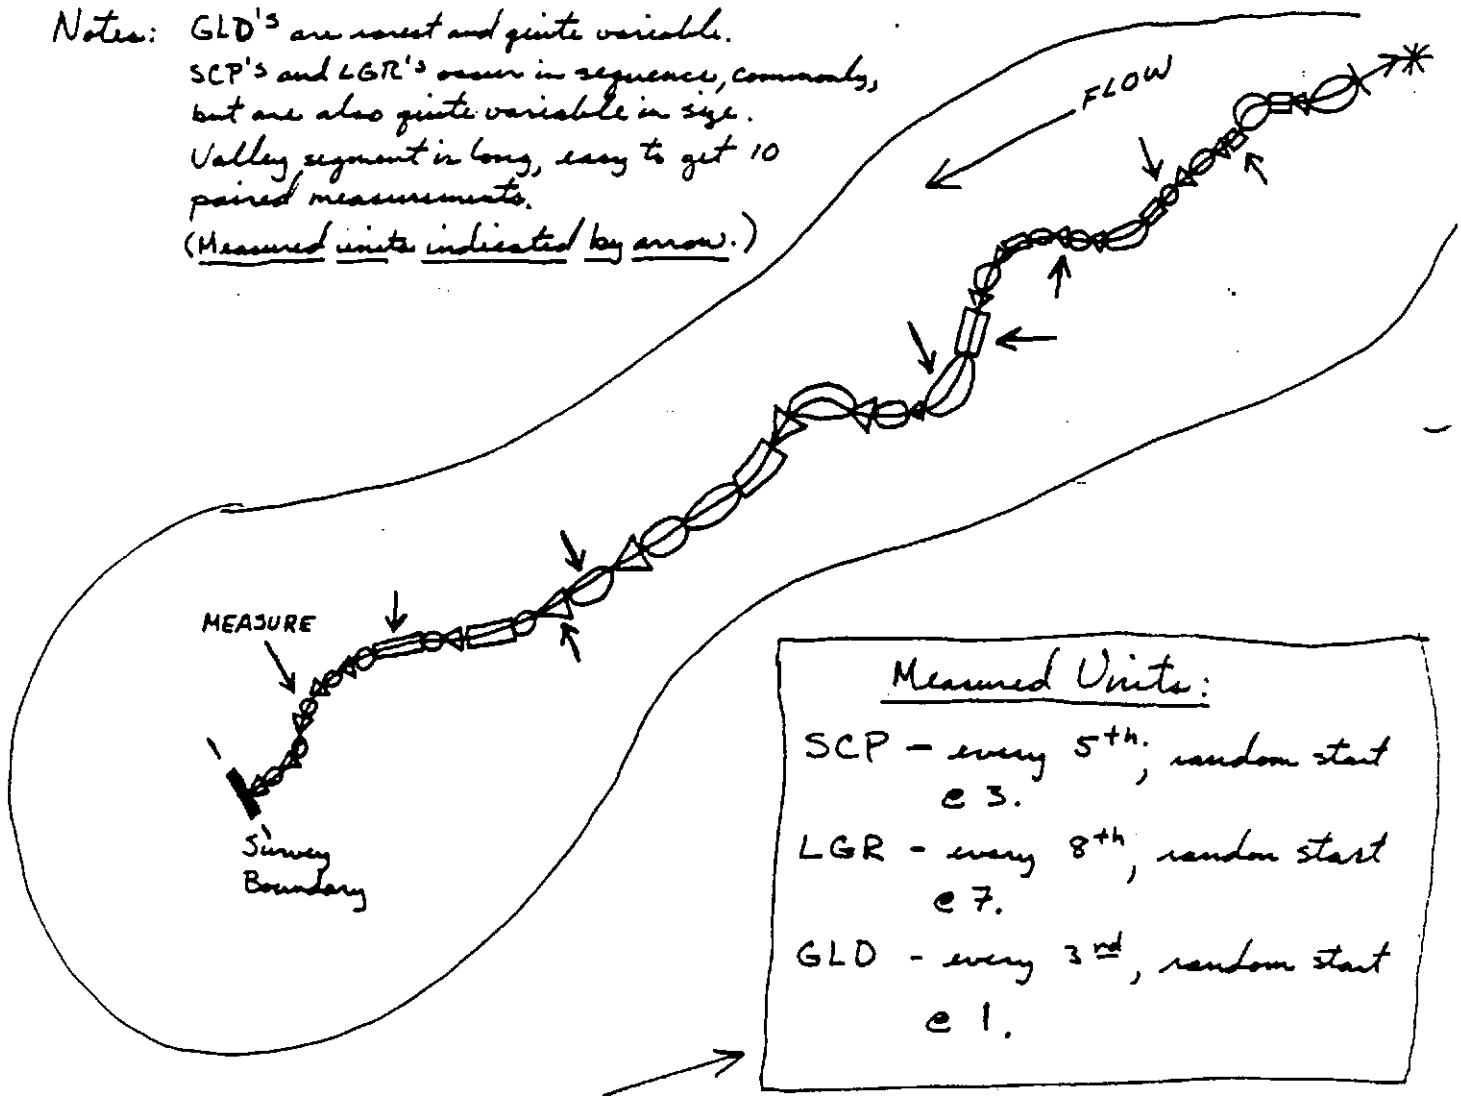 Notes: GLD'S are rarest and quite variable.
SCP'S and LGR'S occur in sequence, commonly,
but are also quite variable in size.
Valley segment is long, easy to get 10
paired measurements.
(Measured units indicated by arrow.)
FLOW
MEASURE
Survey
Boundary
Measured Units:
SCP - every 5th, random start
@ 3.
LGR - every 8th, random start
@ 7.
GLD - every 3rd, random start
@ 1.